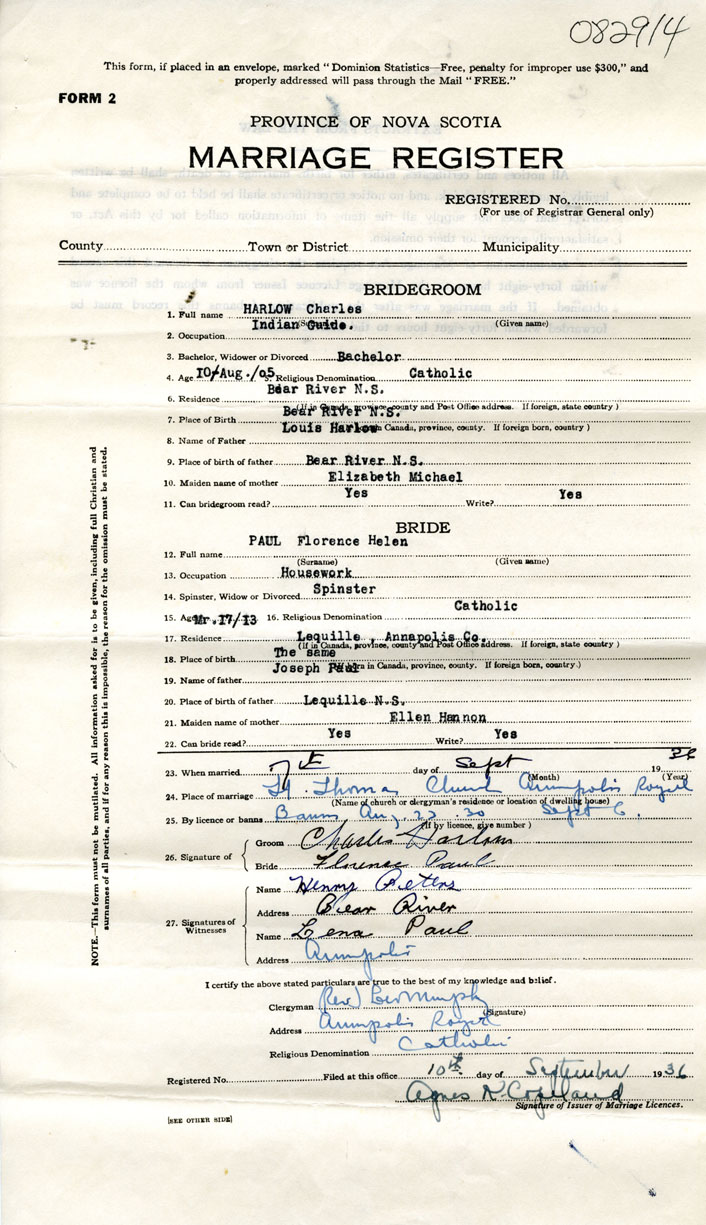 082914
This form, if placed in an envelope, marked "Dominion Statistics—Free, penalty for improper use $300," and
properly addressed will pass through the Mail "FREE."
FORM 2
PROVINCE OF NOVA SCOTIA
MARRIAGE REGISTER
REGISTERED No.
(For use of Registrar General only)
County Town or District Municipality
BRIDEGROOM
1. Full name HARLOW Charles
(Given name)
2. Occupation Indian Guide.
3. Bachelor, Widower or Divorced Bachelor
4. Age 10/Aug./05 5. Religious Denomination Catholic
6. Residence Bear River N.S.
(If in Canada, province, county and Post Office address. If foreign, state country)
7. Place of Birth Bear River N.S.
in Canada, province, county. If foreign born, country)
8. Name of Father Louis Harlow
9. Place of birth of father Bear River N.S.
10. Maiden name of mother Elizabeth Michael
11. Can bridegroom read? Yes Write? Yes
BRIDE
12. Full name PAUL Florence Helen
(Surname) (Given name)
13. Occupation Housework
14. Spinster, Widow or Divorced Spinster
15. Age Mr.17/13 16. Religious Denomination Catholic
17. Residence Lequille , Annapolis Co.
(If in Canada, province, county and Post Office address. If foreign, state country)
18. Place of birth The same
in Canada, province, county. If foreign born, country.)
19. Name of father Joseph Paul
20. Place of birth of father Lequille N.S.
21. Maiden name of mother Ellen Hannon
22. Can bride read? Yes Write? Yes
23. When married 7th day of Sept 1936
(Month) (Year)
24. Place of marriage St. Thomas Church Annapolis Royal
(Name of church or clergyman's residence or location of dwelling house)
25. By licence or banns Banns Aug 23 .30 Sept 6.
(If by licence, give number)
26. Signature of
Groom Charles Harlow
Bride Florence Paul
27. Signatures of Witnesses
Name Henry Peters
Address Bear River
Name Lena Paul
Address Annapolis
I certify the above stated particulars are true to the best of my knowledge and belief.
Clergyman (Rev) Leo Murphy
(Signature)
Address Annapolis Royal
Religious Denomination Catholic
Registered No. Filed at this office 10th day of September 1936
Agnes K Copeland
Signature of Issuer of Marriage Licences.
[SEE OTHER SIDE]
NOTE.—This form must not be mutilated. All information asked for is to be given, including full Christian and
surnames of all parties, and if for any reason this is impossible, the reason for the omission must be stated.